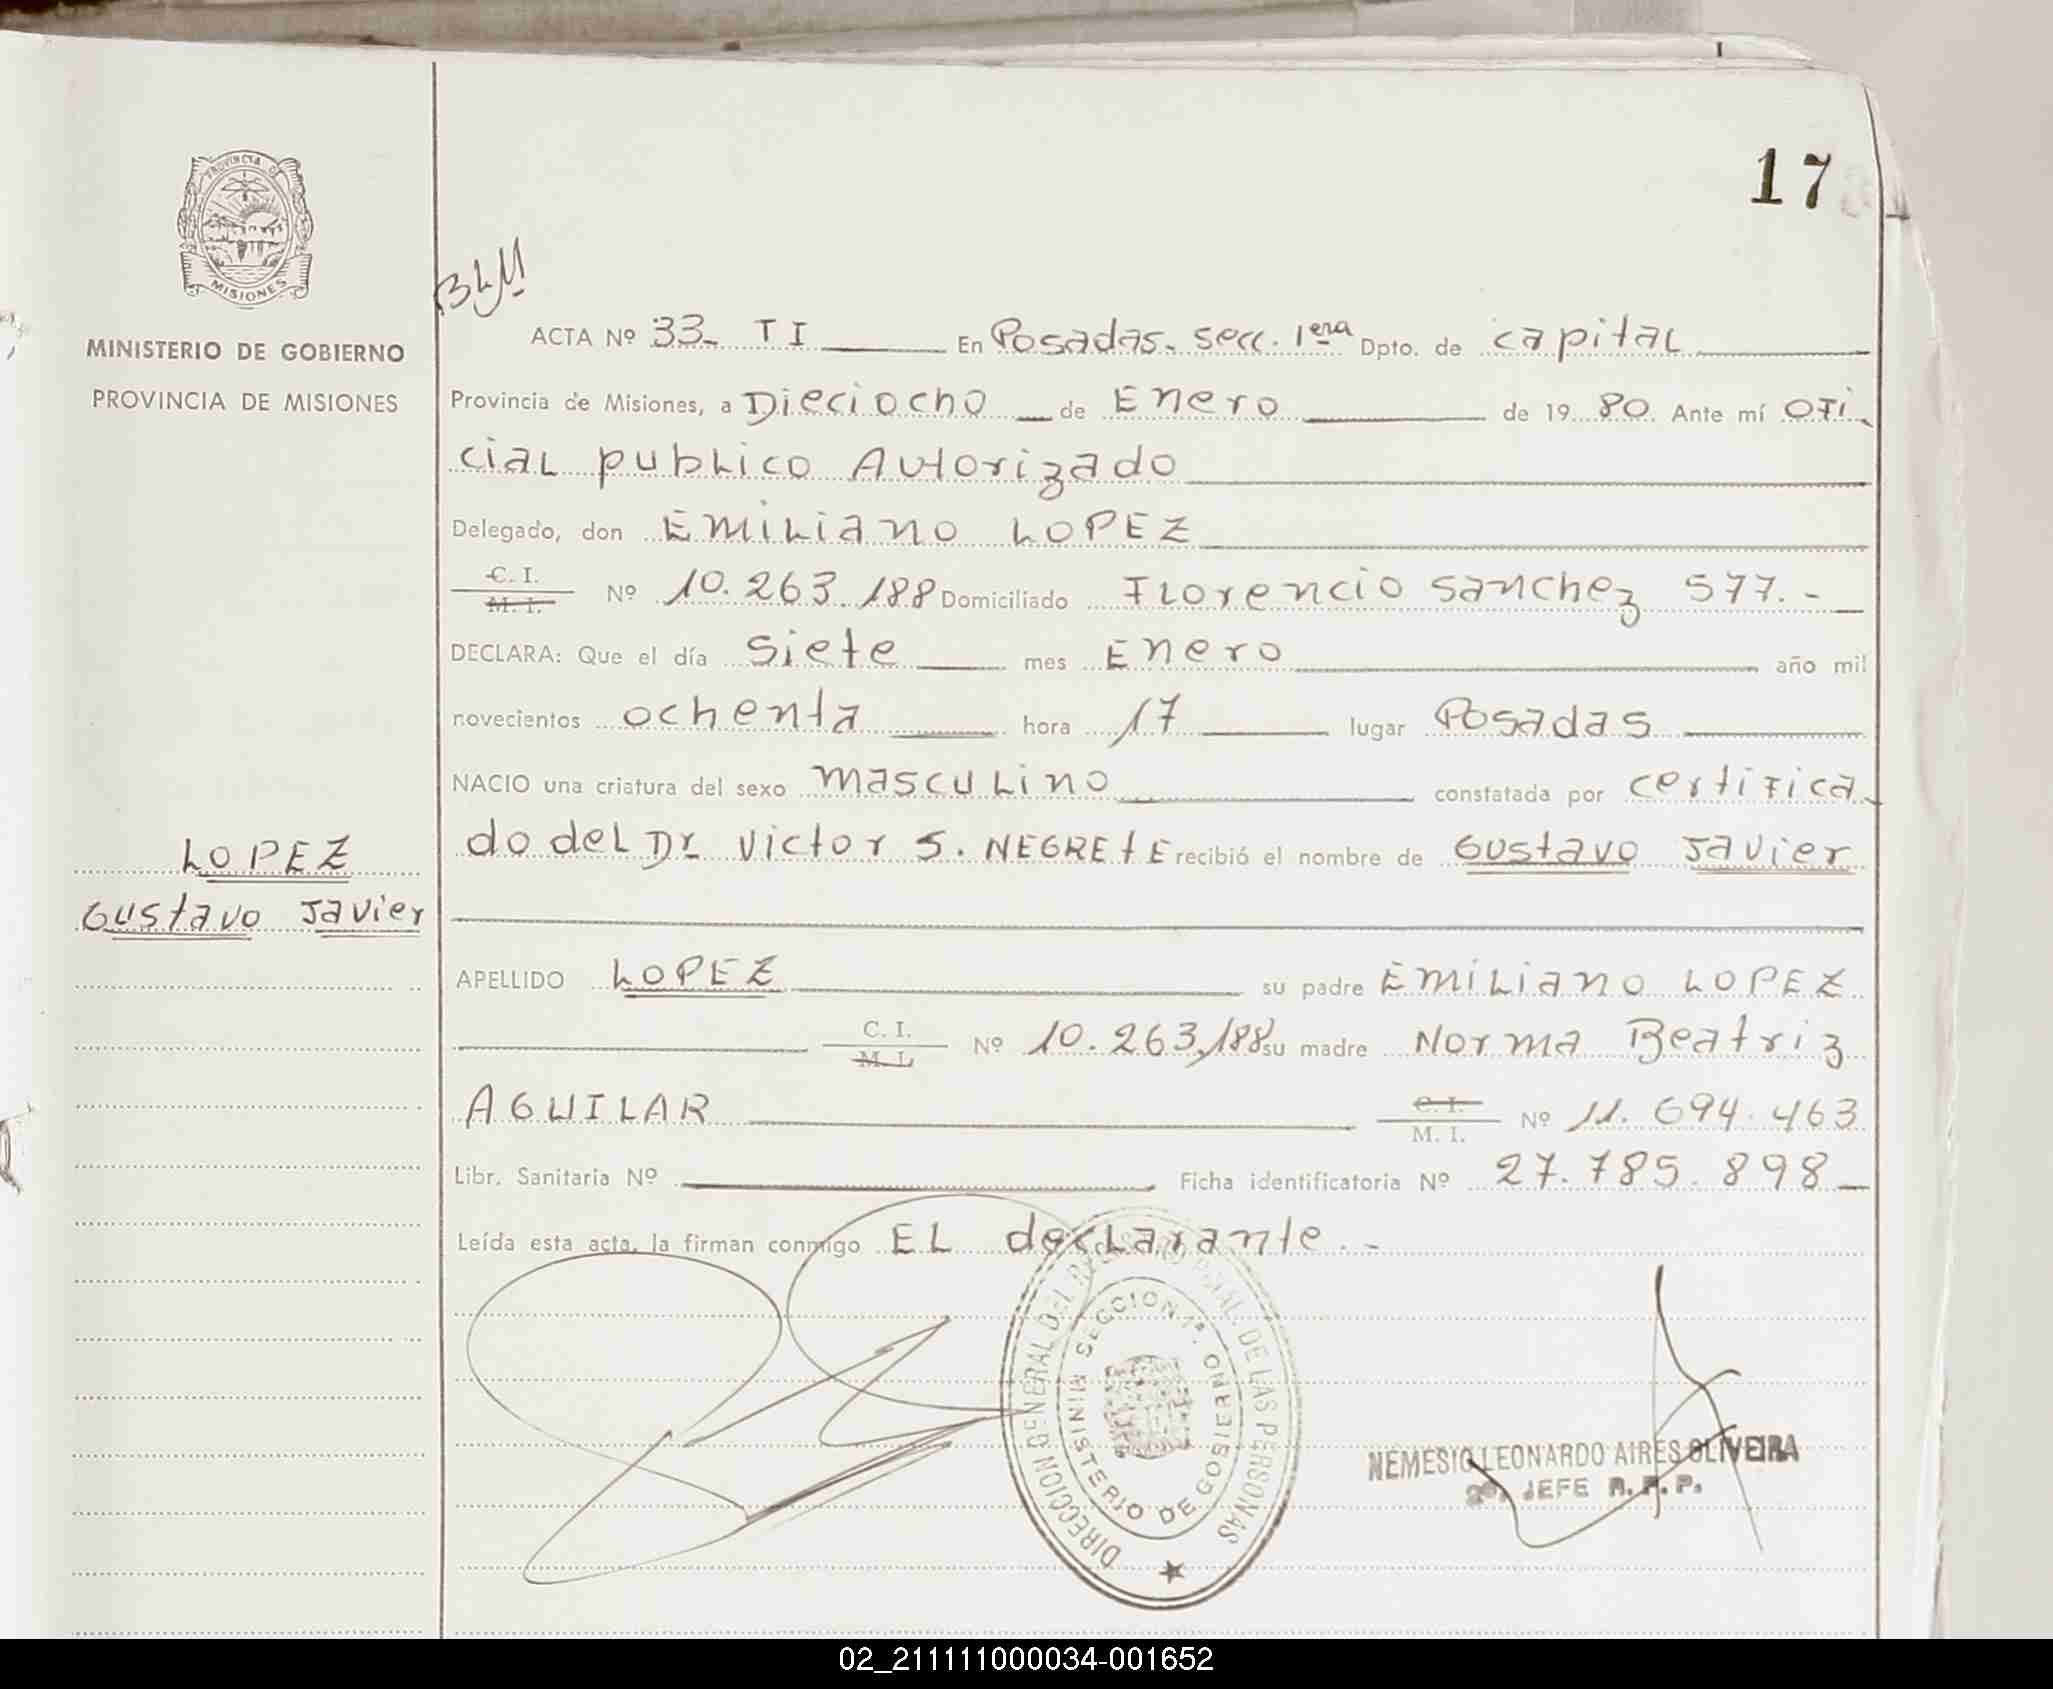 17
PROVINCIA DE
MISIONES
MINISTERIO DE GOBIERNO
PROVINCIA DE MISIONES
ACTA Nº 33 - T I En Posadas - secc. 1era Dpto. de capital
Provincia de Misiones, a Dieciocho de Enero de 1980. Ante mí ofi
cial publico Autorizado
Delegado, don EMiLiano LOPEZ
C. I.
M. I. Nº 10.263.188 Domiciliado Florencio Sanchez 577.-
DECLARA: Que el día siete mes Enero año mil
novecientos ochenta hora 17 lugar Posadas
NACIO una criatura del sexo masculino constatada por certifica
do del Dr Victor S. NEGRETE recibió el nombre de Gustavo Javier
LOPEZ
Gustavo Javier
APELLIDO LOPEZ su padre EMiLiano LOPEZ
C. I.
M. I. Nº 10.263.188 su madre Norma Beatriz
AGUILAR C. I.
M. I. Nº 11.694.463
Libr. Sanitaria Nº Ficha identificatoria Nº 27.785.898
Leída esta acta, la firman conmigo EL declarante.-
DIRECCION GENERAL DEL REGISTRO PCIAL. DE LAS PERSONAS
SECCION 1ª.
MINISTERIO DE GOBIERNO
NEMESIO LEONARDO AIRES OLIVEIRA
JEFE R. P. P.
02_211111000034-001652